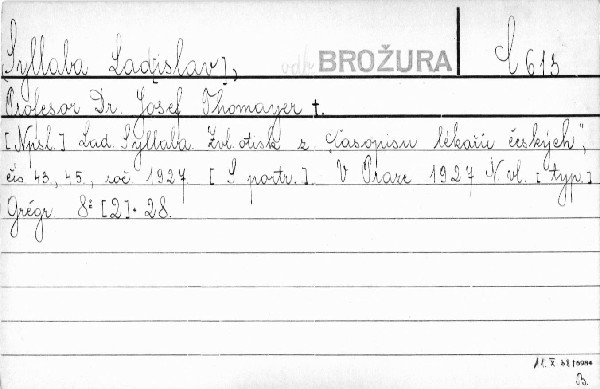 Syllaba Lad[islav],
BROŽURA
C 613
Profesor Dr. Josef Thomayer †.
[Npsl.] Lad. Syllaba. Zvl. otisk z „Časopisu lékařů českých",
čís. 43., 45., roč. 1927. [S portr.]. V Praze 1927 N. vl. [typ.]
Grégr 8° [2]+28.
B.